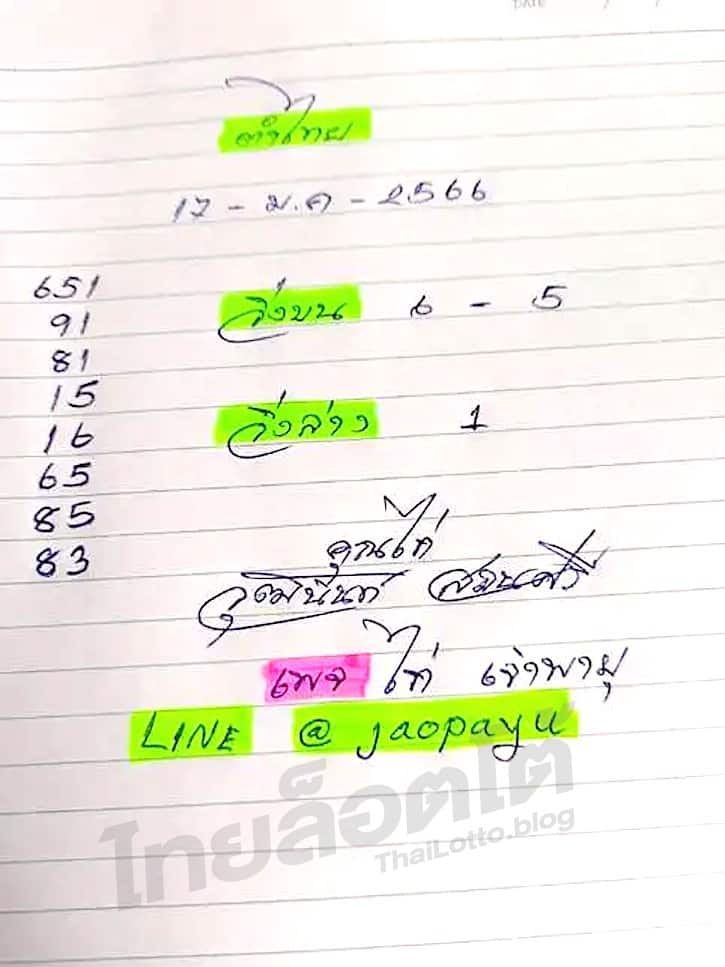 DATE / /
17 - ม.ค - 2566
651
91
81
15
16
65
85
83
วิ่งบน 6 - 5
วิ่งล่าง 1
คุณไก่
วุฒินันท์
เพจ ไก่ เจ้าพายุ
LINE @ jaopayu
ไทยล็อตโต้
ThaiLotto.blog